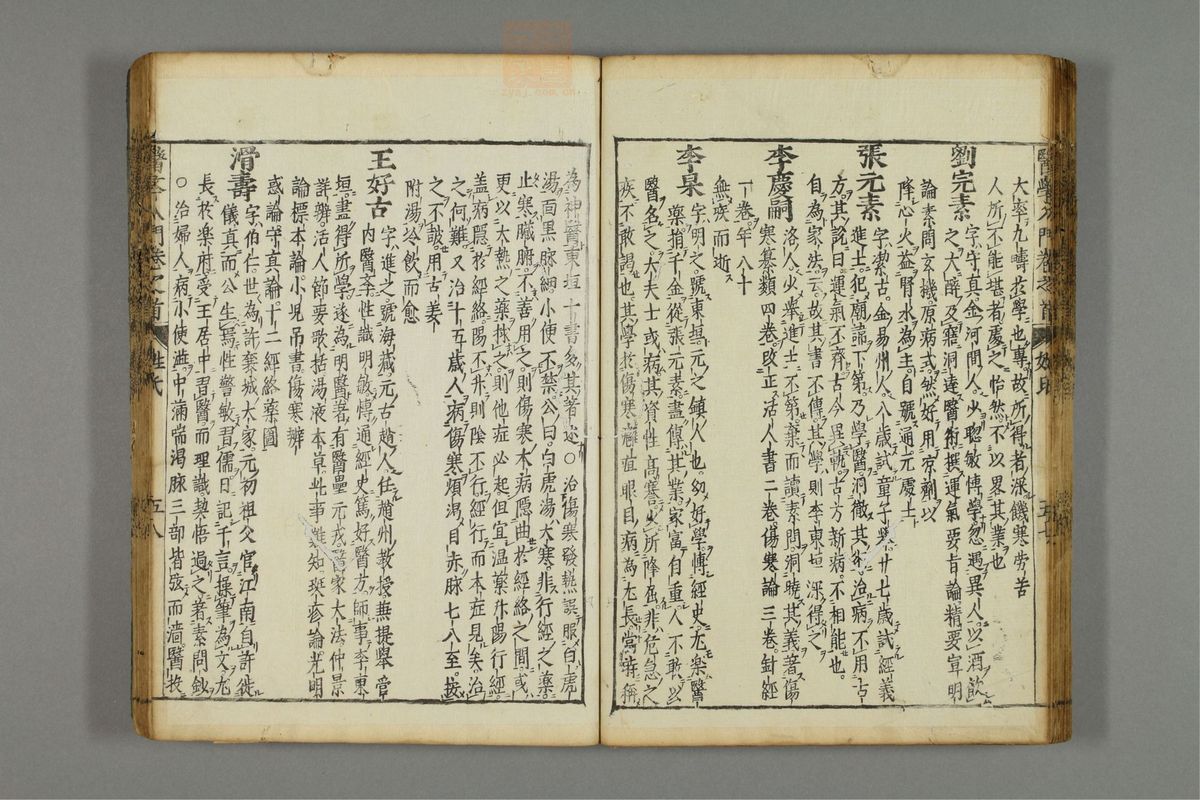 醫學入門卷之首 姓氏 五十七
大率九疇莊學也專故所得者深饑寒勞苦
人所不能堪者處之怡然不以累其業也
劉完素 字守真金河間人少聰敏博學忽遇異人以酒飲
之大醉及寤洞達醫術撰運氣要旨論精要宣明
論素問玄機原病式然好用凉劑以
降心火益腎水為主自號通元處士
張元素 字潔古金易州人八歲試童子舉廿七歲試經義
進士犯廟諱下第乃學醫洞徹其術治病不用古
方其說曰運氣不齊古今異軌古方新病不相能也
自為家法云故其書不傳其學則李東垣深得之
李慶嗣 洛人少舉進士不第棄而讀素問洞曉其義著傷
寒纂類四卷改正活人書二卷傷寒論三卷針經
一卷年八十
無疾而逝
李杲 字明之號東垣元之鎮人也幼好學博經史尤樂醫
藥捐千金從張元素盡傳其業家富自重人不敢以
醫名之大夫士或病其資性高謇少所降屈非危急之
疾不敢謁也其學於傷寒癰疽眼目病為尤長當時稱
為神醫東垣十書多其著述○治傷寒發熱誤服白虎
湯面黑脉細小便不禁公曰白虎湯大寒非行經之藥
止寒臟腑不善用之則傷寒本病隱曲於經絡之間或
更以大熱之藥救之則他症必起但宜溫藥升陽行經
盖病隱於經絡陽不升則陰不行經行而本症見矣治
之何難又治十五歲人病傷寒煩渴目赤脉七八至按
之不皷用古姜
附湯冷飲而愈
王好古 字進之號海藏元古趙人任趙州教授無提舉管
內醫李性識明敏博通經史篤好醫方師事李東
垣盡得所學遂為明醫著有醫壘元戎醫家大法仲景
詳辨活人節要歌括湯液本草此事難知癍疹論光明
論標本論小児吊書傷寒辨
惑論守真論十二經絡藥圖
滑壽 字伯仁世為許襄城大家元初祖父官江南自許徙
儀真而公生焉性警敏習儒日記千言操筆為文尤
長於樂府受王居中習醫而理識契悟過之著素問鈔
○治婦人病小便澁中滿喘渴脉三部皆弦而濇醫投
醫學入門卷之首 姓氏 五十八
zysj.com.cn